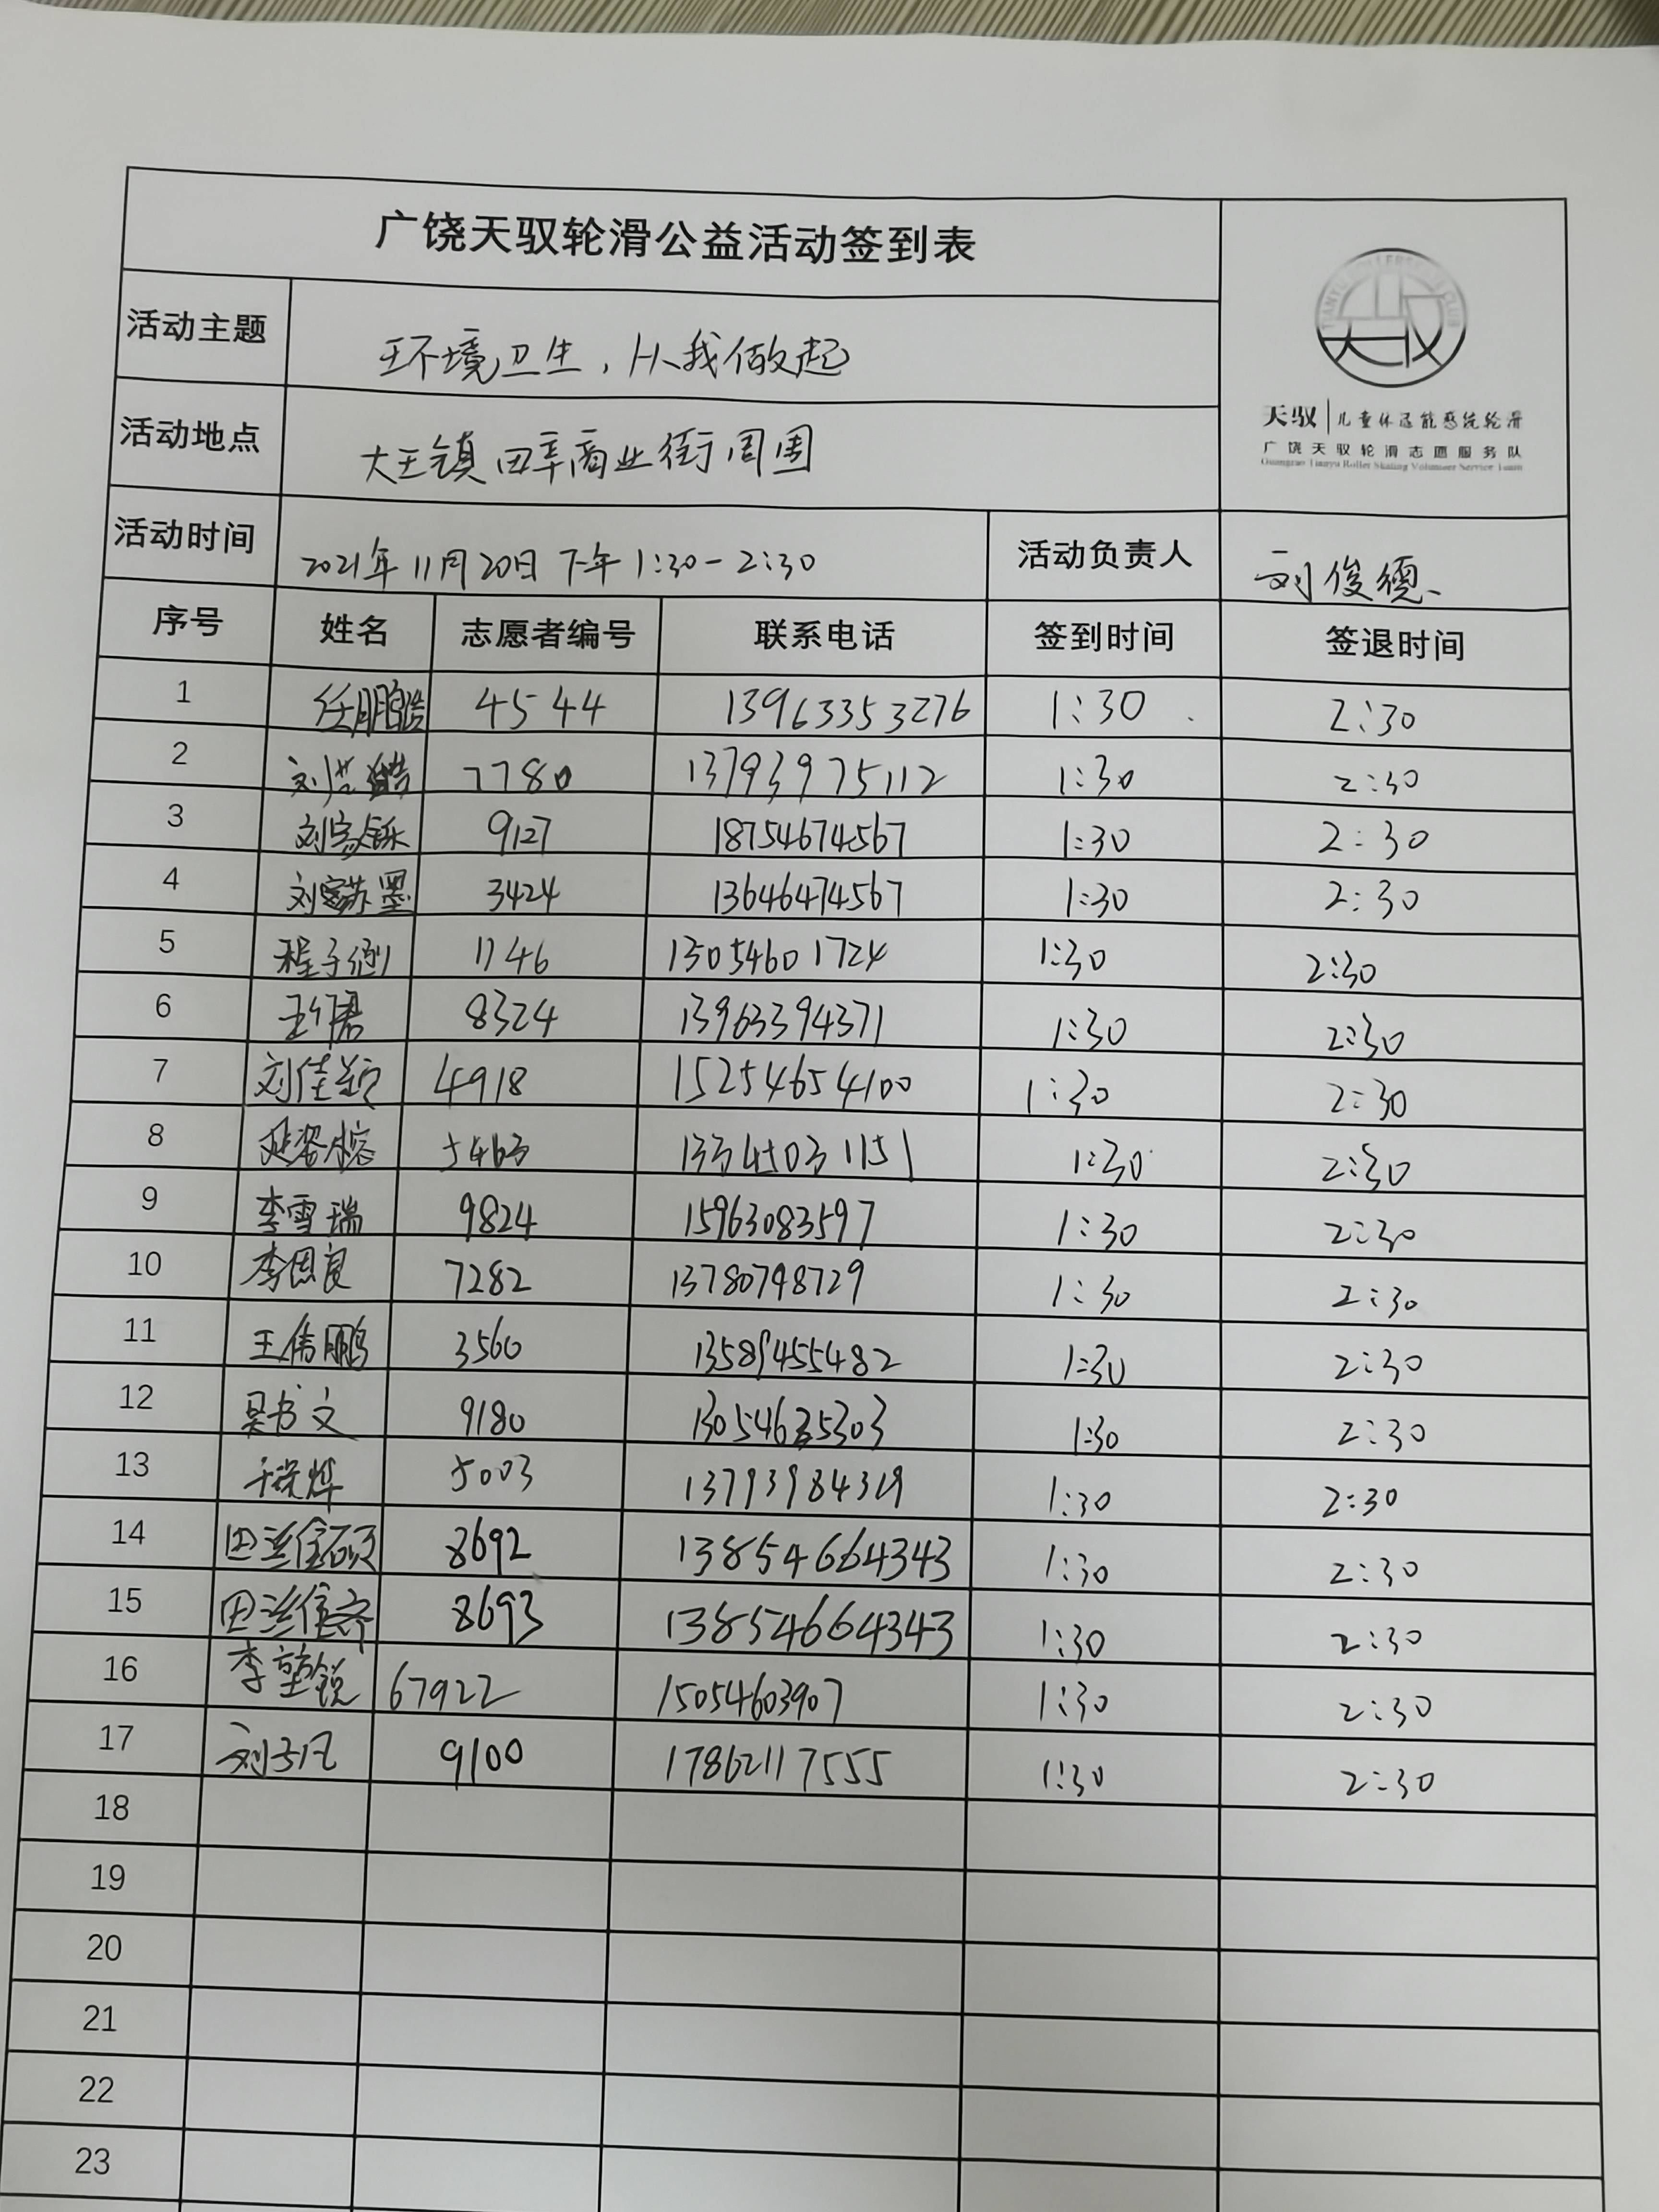 广饶天驭轮滑公益活动签到表
TIANYU ROLLERSKATE CLUB
天驭 儿童体适能感统轮滑
广饶天驭轮滑志愿服务队
Guangrao Tianyu Roller Skating Volunteer Service Team
活动主题 环境卫生,从我做起
活动地点 大王镇田辛商业街周围
活动时间 2021年11月20日 下午 1:30-2:30 活动负责人 刘俊德
序号 姓名 志愿者编号 联系电话 签到时间 签退时间
1 任鹏皓 4544 13963353276 1:30 2:30
2 7780 13793975112 1:30 2:30
3 刘家铄 9127 18754674567 1:30 2:30
4 9 3424 13646474567 1:30 2:30
5 程子 1746 13054601724 1:30 2:30
6 8324 13963394371 1:30 2:30
7 刘佳颖 4918 15254654100 1:30 2:30
8 5463 13345031151 1:30 2:30
9 李雪瑞 9824 15963083597 1:30 2:30
10 李恩良 7282 13780798729 1:30 2:30
11 王伟鹏 3560 13589455482 1:30 2:30
12 吴书文 9180 13054635303 1:30 2:30
13 5003 13793984319 1:30 2:30
14 8692 13854664343 1:30 2:30
15 8693 13854664343 1:30 2:30
16 李堃锐 67922 15054603907 1:30 2:30
17 刘子凡 9100 17862117555 1:30 2:30
18
19
20
21
22
23